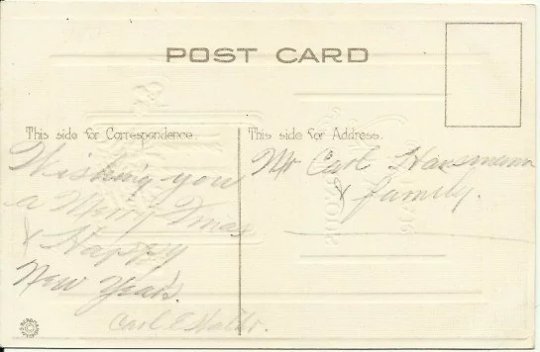 POST CARD
This side for Correspondence.
This side for Address.
Wishing you
a Merry Xmas
& Happy
New Year.
Carl E
Mr Carl Hansmann
& family.